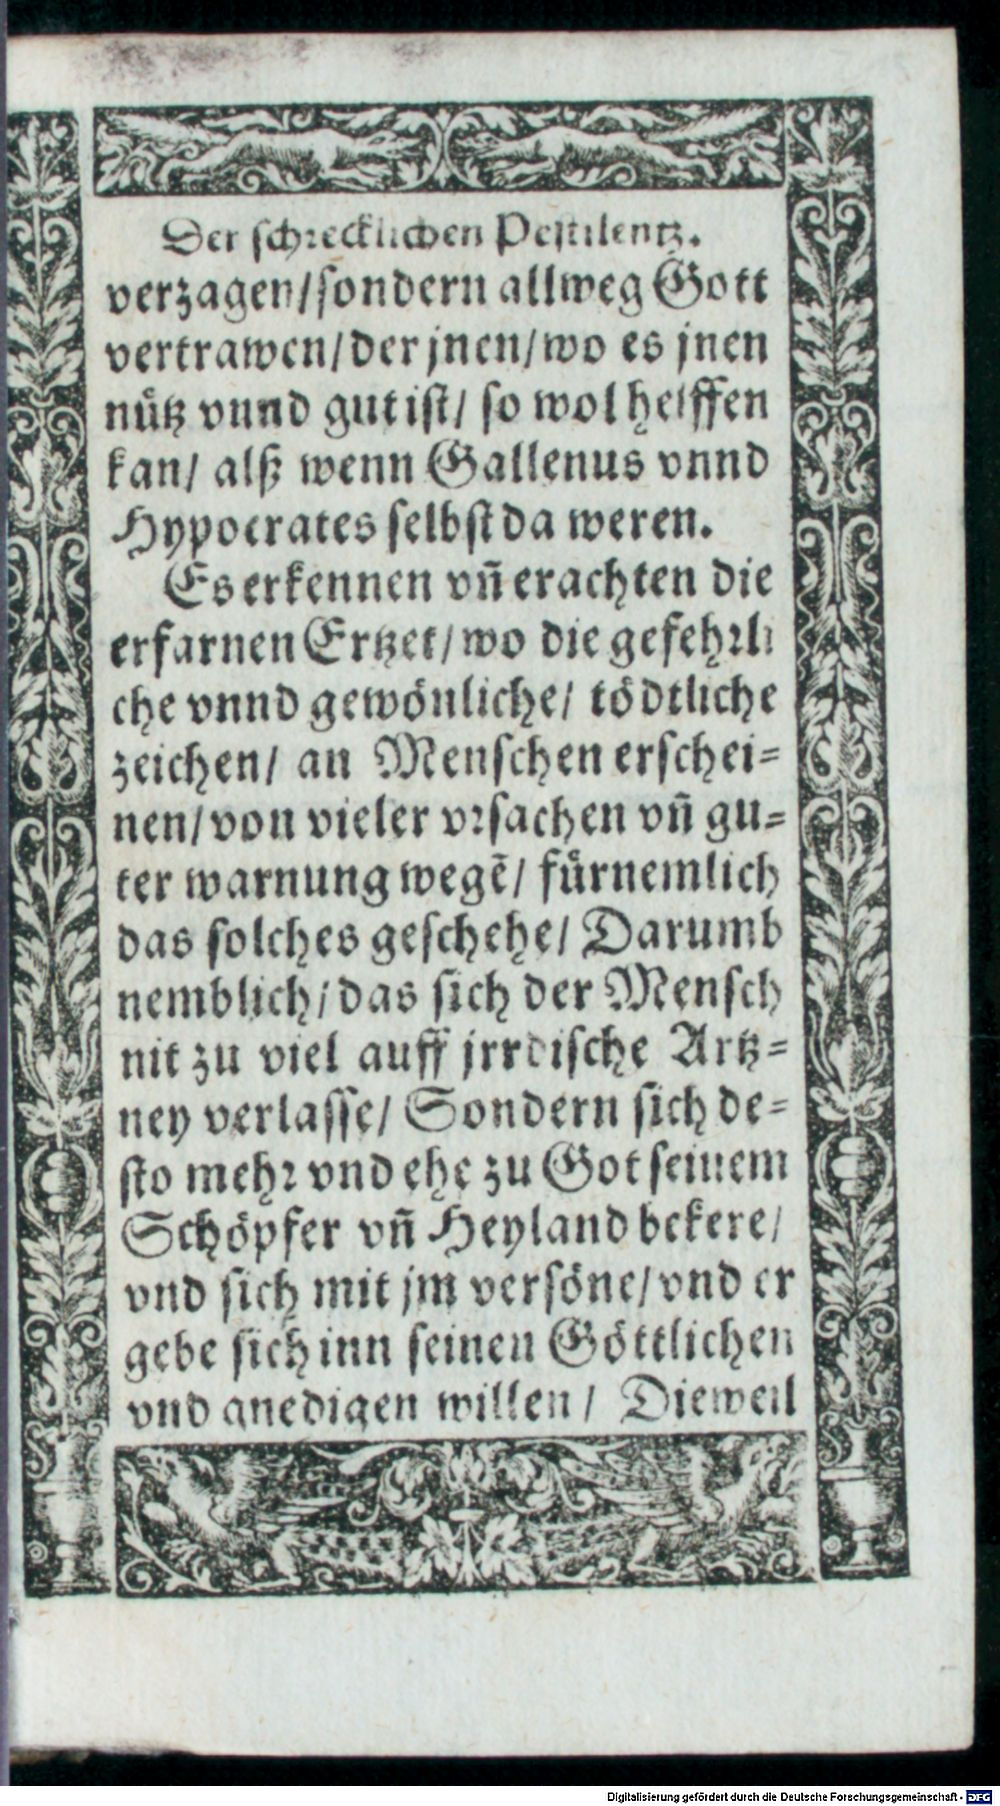 Der schrecklichen Pestilentz.
verzagen/sondern allweg Gott
vertrawen/der jnen/wo es jnen
nuͤtz vnnd gut ist/ so wol helffen
kan/ alß wenn Gallenus vnnd
Hypocrates selbst da weren.
Es erkennen vñ erachten die
erfarnen Ertzet/wo die gefehrli
che vnnd gewoͤnliche/ toͤdtliche
zeichen/ an Menschen erschei=
nen/von vieler vrsachen vñ gu=
ter warnung wegẽ/ fuͤrnemlich
das solches geschehe/ Darumb
nemblich/das sich der Mensch
nit zu viel auff jrrdische Artz=
ney verlasse/ Sondern sich de=
sto mehr vnd ehe zu Got seinem
Schoͤpfer vñ Heyland bekere/
vnd sich mit jm versoͤne/vnd er
gebe sich inn seinen Goͤttlichen
vnd gnedigen willen/ Dieweil
Digitalisierung gefördert durch die Deutsche Forschungsgemeinschaft - DFG